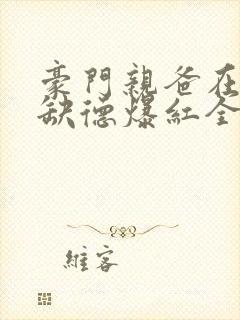 豪門親爸在
缺德爆紅全
維客